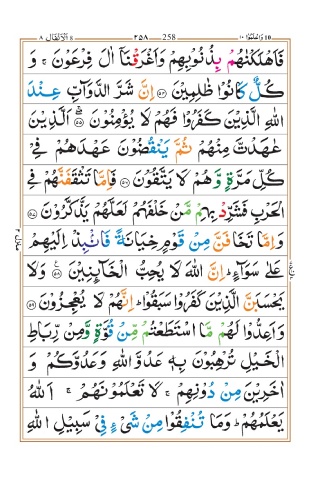 ٨ الانفال ٨ ٢٥٨ 258 واعلموا ١٠ 10
فَاَهْلَكْنٰهُمْ بِذُنُوْبِهِمْ وَاَغْرَقْنَاۤ اٰلَ فِرْعَوْنَ ۚ وَ
كُلٌّ كَانُوْا ظٰلِمِيْنَ ﴿۵۴﴾ اِنَّ شَرَّ الدَّوَآبِّ عِنْدَ
اللّٰهِ الَّذِيْنَ كَفَرُوْا فَهُمْ لَا يُؤْمِنُوْنَ ﴿۵۵﴾ اَلَّذِيْنَ
عٰهَدْتَّ مِنْهُمْ ثُمَّ يَنْقُضُوْنَ عَهْدَهُمْ فِيْ
كُلِّ مَرَّةٍ وَّهُمْ لَا يَتَّقُوْنَ ﴿۵۶﴾ فَاِمَّا تَثْقَفَنَّهُمْ فِي
الْحَرْبِ فَشَرِّدْ بِهِمْ مَّنْ خَلْفَهُمْ لَعَلَّهُمْ يَذَّكَّرُوْنَ ﴿۵۷﴾
وَاِمَّا تَخَافَنَّ مِنْ قَوْمٍ خِيَانَةً فَانْۢبِذْ اِلَيْهِمْ
عَلٰى سَوَآءٍ ؕ اِنَّ اللّٰهَ لَا يُحِبُّ الْخَآئِنِيْنَ ﴿۵۸﴾ وَلَا
يَحْسَبَنَّ الَّذِيْنَ كَفَرُوْا سَبَقُوْا ؕ اِنَّهُمْ لَا يُعْجِزُوْنَ ﴿۵۹﴾
وَاَعِدُّوْا لَهُمْ مَّا اسْتَطَعْتُمْ مِّنْ قُوَّةٍ وَّمِنْ رِّبَاطِ
الْخَيْلِ تُرْهِبُوْنَ بِهٖ عَدُوَّ اللّٰهِ وَعَدُوَّكُمْ وَ
اٰخَرِيْنَ مِنْ دُوْنِهِمْ ۚ لَا تَعْلَمُوْنَهُمْ ۚ اَللّٰهُ
يَعْلَمُهُمْ ؕ وَمَا تُنْفِقُوْا مِنْ شَيْءٍ فِيْ سَبِيْلِ اللّٰهِ